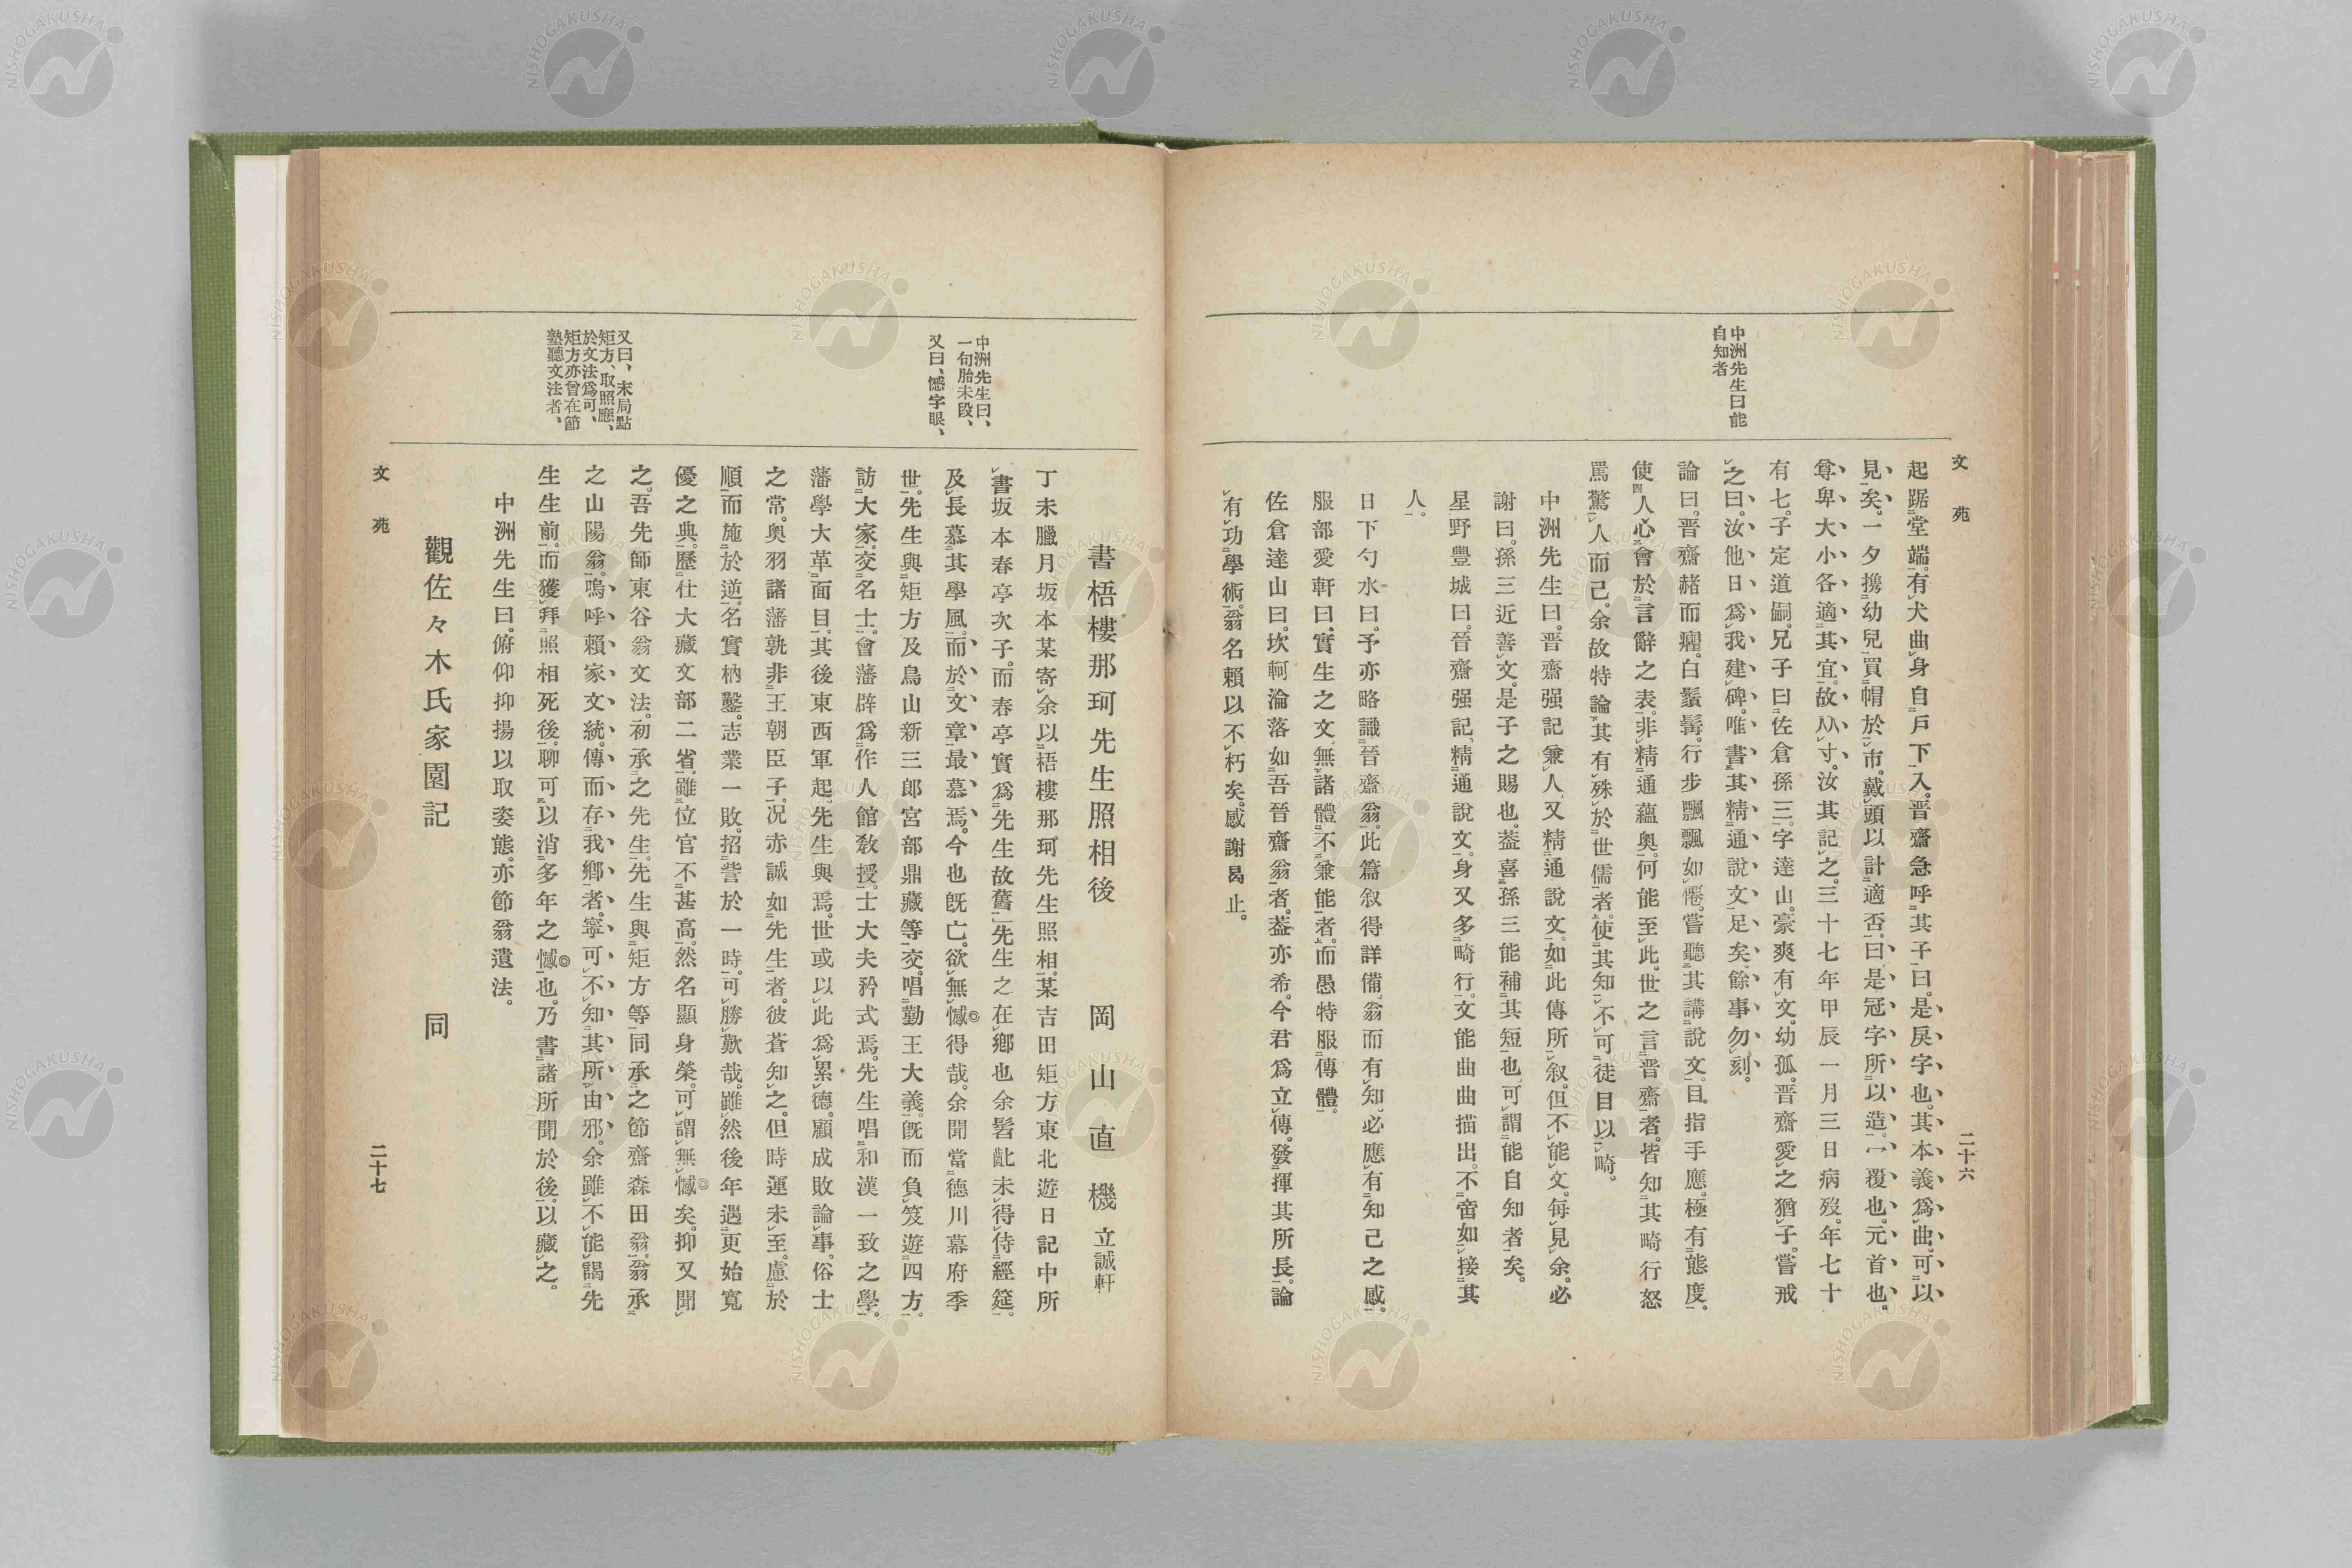 文苑
二十六
中洲先生曰能
自知者
起踞堂端。有犬曲身自戶下入。晋齋急呼其子曰。是戾字也。其本義爲曲。可以
見矣。一夕携幼兒買帽於市。戴頭以計適否。曰是冠字所以造。冖覆也。元首也。
尊卑大小各適其宜。故从寸。汝其記之。三十七年甲辰一月三日病歿。年七十
有七。子定道嗣。兄子曰佐倉孫三。字達山。豪爽有文。幼孤。晋齋愛之猶子。嘗戒
之曰。汝他日爲我建碑。唯書其精通說文足矣。餘事勿刻。
論曰。晋齋赭而癯。白鬚髯。行步飄飄如僊。嘗聽其講說文。目指手應。極有態度。
使人心會於言辭之表。非精通蘊奧。何能至此。世之言晋齋者。皆知其畸行怒
罵驚人而己。余故特論其有殊於世儒者。使其知不可徒目以畸。
中洲先生曰。晋齋强記兼人、又精通說文。如此傳所叙。但不能文。每見余。必
謝曰。孫三近善文。是子之賜也。葢喜孫三能補其短也、可謂能自知者矣。
星野豐城曰。晉齋强記、精通說文。身又多畸行。文能曲曲描出。不啻如接其
人。
日下勺水曰。予亦略識晉齋翁。此篇叙得詳備、翁而有知、必應有知己之感。
服部愛軒曰。實生之文、無諸體不兼能者。而愚特服傳體。
佐倉達山曰。坎軻淪落如吾晉齋翁者。葢亦希。今君爲立傳。發揮其所長。論
有功學術。翁名賴以不朽矣。感謝曷止。
中洲先生曰、
一句胎未段、
又曰、憾字眼、
又曰、末局點
矩方、取照應、
於文法爲可、
矩方亦曾在節
塾聽文法者、
書梧樓那珂先生照相後　岡山直機 立誠軒
丁未臘月坂本某寄余以梧樓那珂先生照相。某吉田矩方東北遊日記中所
書坂本春亭次子。而春亭實爲先生故舊。先生之在鄕也余髫齔未得侍經筵。
及長慕其學風。而於文章最慕焉。今也旣亡。欲無憾得哉。余聞當德川幕府季
世。先生與矩方及鳥山新三郞宮部鼎藏等交。唱勤王大義。旣而負笈遊四方。
訪大家。交名士。會藩辟爲作人館敎授。士大夫矜式焉。先生唱和漢一致之學。
藩學大革面目。其後東西軍起。先生與焉。世或以此爲累德。顧成敗論事。俗士
之常。奧羽諸藩孰非王朝臣子。况赤誠如先生者。彼蒼知之。但時運未至。慮於
順而施於逆。名實枘鑿。志業一敗。招訾於一時。可勝歎哉。雖然後年遇更始寬
優之典。歷仕大藏文部二省。雖位官不甚高。然名顯身榮。可謂無憾矣。抑又聞
之。吾先師東谷翁文法。初承之先生。先生與矩方等同承之節齋森田翁。翁承
之山陽翁。嗚呼賴家文統。傳而存我鄕者。寧可不知其所由邪。余雖不能謁先
生生前。而獲拜照相死後。聊可以消多年之憾也。乃書諸所聞於後。以藏之。
中洲先生曰。俯仰抑揚以取姿態。亦節翁遺法。
觀佐々木氏家園記　同
文苑
二十七